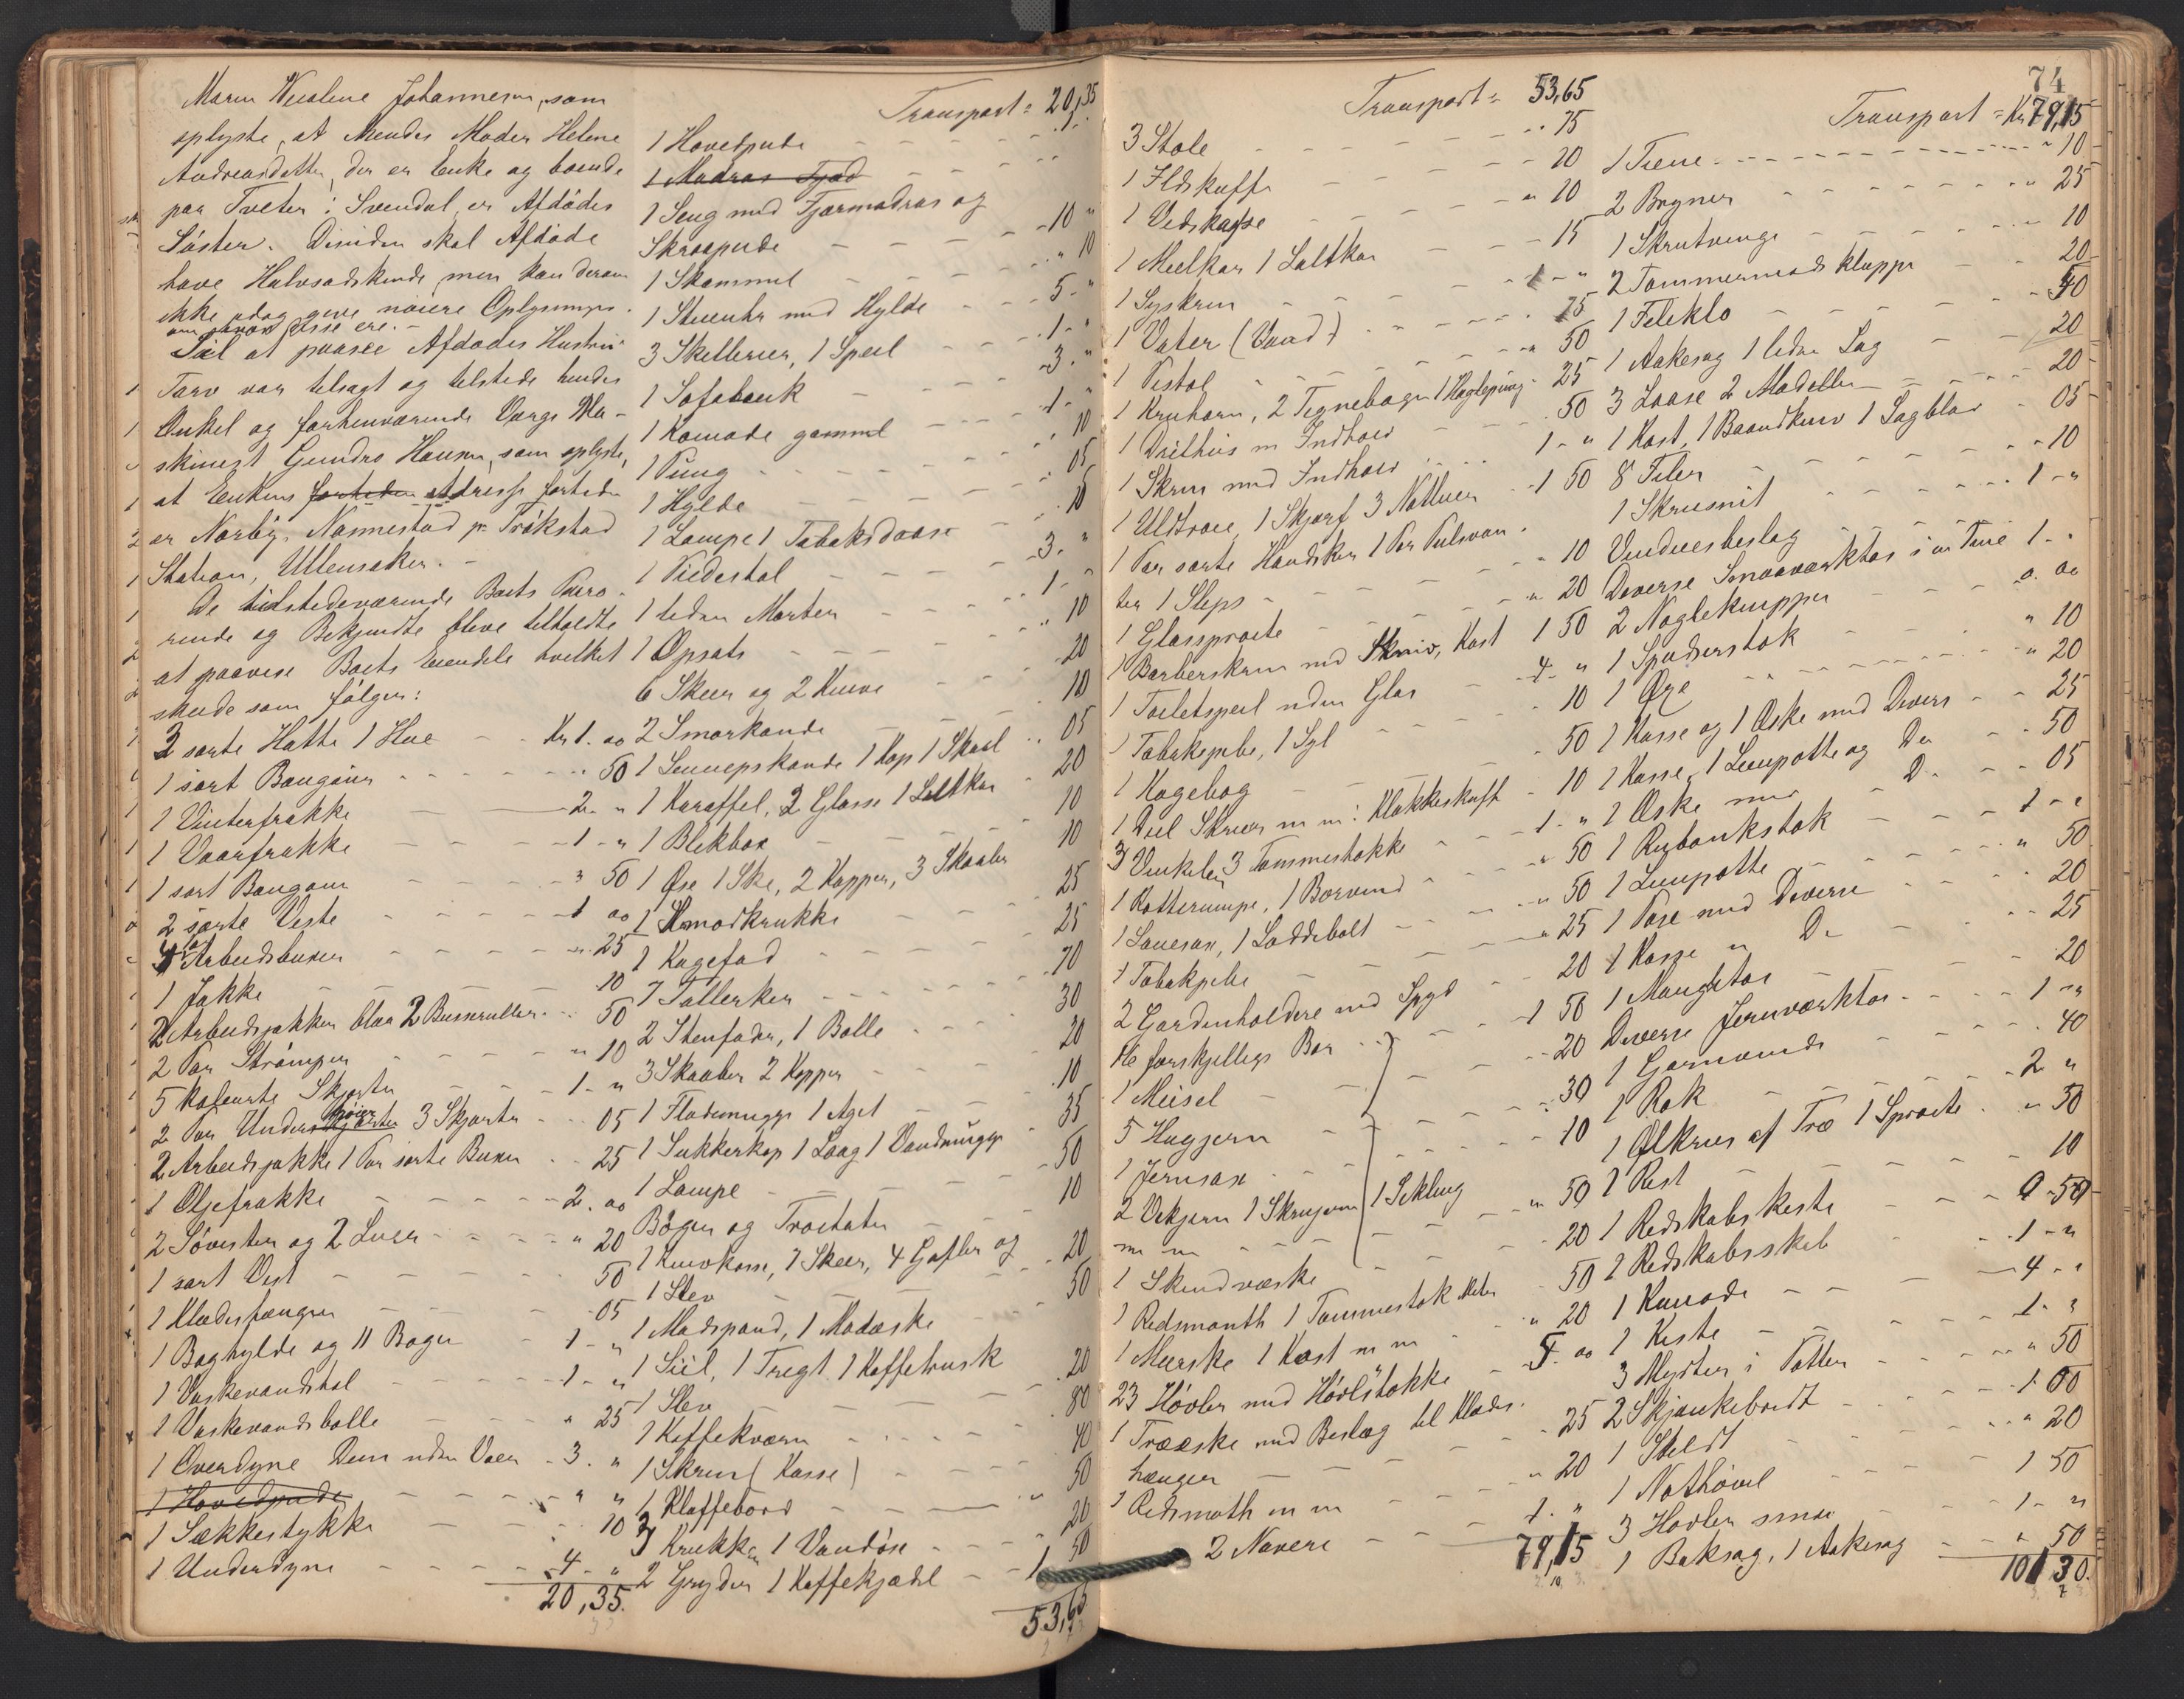 Maren Nicoline Johannesen, som
oplyste, at hendes Moder Helene
Andreasdatter, der er Enke og boende
paa Tveter i Svendal er Afdødes
Søster. Desuden skal Afdøde
have Halvsødskende, men kan derom
ikke idag give nøiere Oplysninger
om hvor disse ere.-
Til at paasee Afdødes Hustrues
Tarv var tilsagt og tilstede hendes
Onkel og forhenværende Værge Ma-
skinist Gundro Hansen, som oplyste,
at Enkens Adresse fortiden
er Nørby, Nannestad pr Trøkstad
Station, Ullensaker.-
De tilstedeværende Boets Paaro-
rende og Bekjendte bleve tilholdte
at paavise Boets Eiendele hvilket
skede som følger:
3 sorte Hatte 1 Hue - - Kr 1. oo
1 sort Bonjour - - " 50
1 Vinterfrakke 2 - "
1 Vaarfrakke - - 1 - "
1 sort Bonjour - - " 50
2 sorte Veste - - 1 oo
4 Arbeidsbuxer - - " 25
1 Jakke - - 10
2 Arbeidsjakker blaa 2 Busseruller - 50
2 Par Strømper - - " 10
5 kulørte Skjorter - - 1 - "
2 Par Undertrøier 3 Skjorter - - 05
2 Arbeidsjakke 1 Par sorte Buxer - - 25
1 Oljefrakke - - 2. oo
2 Søvester og 2 Luer - - " 20
1 sort Vest - - 50
1 Klædeshænger - - 05
1 Boghylde og 11 Bøger - 1 - "
1 Vaskevandstol - - 1 - "
1 Vaskevandsbolle - - " 25
1 Overdyne Duun uden Vaer - 3. "
1 Hovedpude - - " "
1 Sækkestykke - - 10
1 Underdyne - - 4 - "
20,35.
Transport = 20,35
1 Hovedpude - -
1 Madras Fjød
1 Seng med Fjærmadras og
Skraapude - - 10 "
1 Skammel - - " 10
1 Stueuhr med Hylde - - 5 - "
3 Skillerier, 1 Speil - - 1 - "
1 Sofabænk - - 3. "
1 Komode gammel - - 1 - "
1 Pung - - 10
1 Hylde - - 05
1 Lampe 1 Tabaksdaase - 10
1 Piedestal - - 3. "
1 liden Morter - - 1 - "
1 Opsats - - " 10
6 Skeer og 2 Knive - - 20
2 Smørkande - - 10
1 Sennepskande 1 Kop 1 Skaal - 05
1 Karaffel, 2 Glasse 1 Saltkar - 20
1 Blikbox - - 10
1 Øse 1 Ske, 2 Kopper, 3 Skaaler 10
1 Smørkrukke - - 25
1 Kagefad - - 25
7 Tallerker - - 70
2 Stenfader, 1 Bolle - - 30
3 Skaaler 2 Kopper - - 20
1 Flødemugge 1 Aget - - 10
1 Sukkerkop 1 Laag 1 Vandmugge - 35
1 Lampe - - 50
Bøger og Tractater - - 10
1 Knivkasse, 7 Skeer, 4 Gafler og
1 Slev - - 20
1 Madspand, 1 Madæske - 50
1 Siil, 1 Tragt 1 Kaffebrusk
1 Slev - - 20
1 Kaffekværn - - 80
1 Skrin (Kasse) - - 40
1 Klaffebord - - 50
3 Krukker 1 Vandøse - - 20
2 Gryder 1 Kaffekjædel - - 1 50
53,65
Transport = 53,65
3 Stole - - 75
1 Ildskuffe - - 20
1 Vedskasse - - " 10
1 Meelkar 1 Saltkar - - 15
1 Syskrin - - 1 - "
1 Vater (Vand) - - 75
1 Pistol - - " 50
1 Kruthorn, 2 Tegnebøger 1 Haglepung 25
1 Drilhus m Indhold - - 50
1 Skrin med Indhold - - 1 - "
1 Uldtrøie, 1 Skjærf, 3 Natluer - 1 50
1 Par sorte Handsker 1 Par Pulsvan-
ter 1 Slips - - " 10
1 Glassprøite - - " 20
1 Barberskrin med Skrin, Kost 1 50
1 Toiletspeil uden Glas - 4 - "
1 Tabakspibe, 1 Syl - - 10
1 Kogebog - - 50
1 Deel Skruer m m i Klokkeskuff - 10
3 Vinkler 3 Tommestokke - - 1 - "
1 Rotterumpe, 1 Borvind - - " 50
1 Lousax, 1 Loddebolt - - " 50
1 Tobakpibe - - " 25
2 Gardinholdere med Spyd - 20
16 forskjellige Bor - - 1 50
1 Meisel - - 20
5 Huggjern - - 30
1 Jernsax - - 10
2 Vekjern 1 Skrujern 1 Sikling
m m - - " 50
1 Skindvæske - - 20
1 Redsmonth 1 Tommestok Meter - 50
1 Meeske 1 Kost m m - - " 20
23 Høvler med Høvlstokke - 5. oo
1 Træeske med Beslag til Klæds-
hænger - - 25
1 Redsmoth m m - - " 20
2 Navere - - 1. "
79,15
74
Transport = Kr 79,15
1 Tiene - - " 10
2 Bryner - - " 25
1 Skrutvinge - - " 10
2 Tømmermands kluppe - - 20
1 Fileklo - - 50
1 Aakesag 1 liden Sag - - 20
3 Laase 2 Modeller - - 20
1 Kost, 1 Baandkniv 1 Sagblad - 05
8 Filer - - 10
1 Skruenit - - 1 - "
Vinduesbeslag
Diverse Smaaværktøi i en Tine 1 - "
2 Nøgleknipper - - o. oo
1 Spadserstok - - " 10
1 Øxe - - " 20
1 Kasse og 1 Æske med Divers - - 25
1 Kasse, 1 Limpotte og Do - - 50
1 Æske med Do - - 05
1 Rubankstok - - 1 - "
1 Limpotte - - " 50
1 Pose med Diverse - - 20
1 Kasse " Do - - 25
1 Mangletøi - - 20
Diverse Jernværktøi - - 1 - "
1 Garnvinde - - 40
1 Rok - - 2 "
1 Ølkrus af Træ 1 Sprøite - " 50
1 Rist - - 10
1 Redskabskiste - - 0 - 50
1 Redskabsskab - - 1 - "
1 Komode - - 4 - "
1 Kiste - - 1 - "
3 Mynter i Potter - - " 50
2 Skjænkebrædt - - 1. 00
1 Skildt - - " 20
1 Nothøvel - - 1 50
3 Høvler smaa - - 1 - "
1 Baksag, 1 Aakesag - - " 50
101 30.